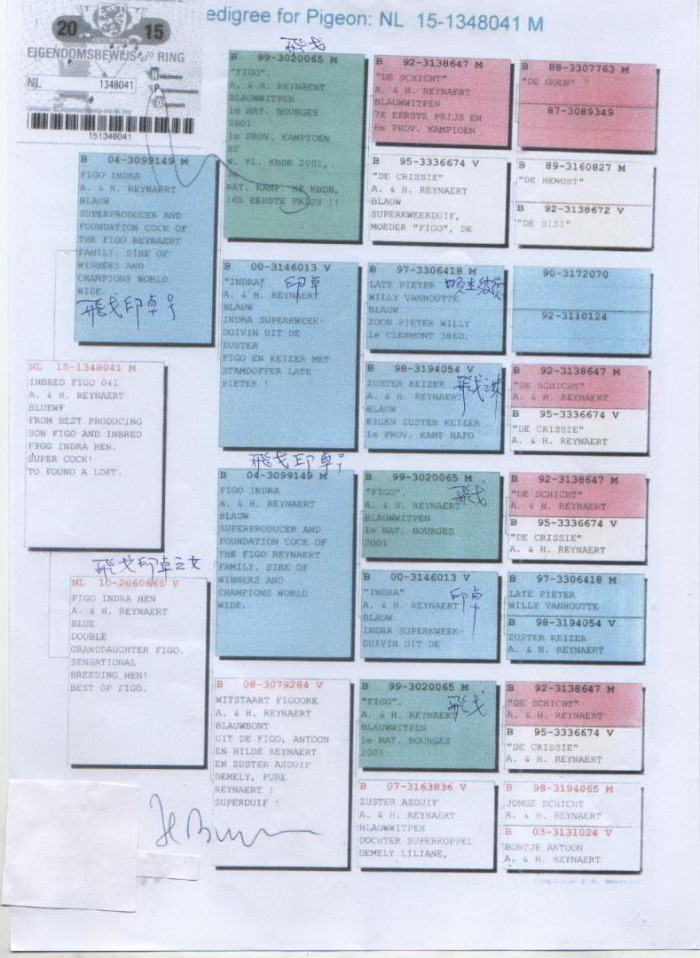 edigree for Pigeon: NL 15-1348041 M
20 15
EIGENDOMSBEWIJS V/D RING
NL 1348041
151348041
NL 15-1348041 M
INBRED FIGO 041
A. & H. REYNAERT
BLUEWF
FROM BEST PRODUCING
SON FIGO AND INBRED
FIGO INDRA HEN.
SUPER COCK!
TO FOUND A LOFT.
B 04-3099149 M
FIGO INDRA
A. & H. REYNAERT
BLAUW
SUPERPRODUCER AND
FOUNDATION COCK OF
THE FIGO REYNAERT
FAMILY. SIRE OF
WINNERS AND
CHAMPIONS WORLD
WIDE.
飛戈印卓号
飛戈印卓之女
NL 10-2060665 V
FIGO INDRA HEN
A. & H. REYNAERT
BLUE
DOUBLE
GRANDDAUGHTER FIGO.
SENSATIONAL
BREEDING HEN!
BEST OF FIGO.
飛戈
B 99-3020065 M
"FIGO".
A. & H. REYNAERT
BLAUWWITPEN
1e NAT. BOURGES
2001
1e PROV. KAMPIOEN
W. VL. KBDB 2001,
NAT. KAMP. HE KBDB,
16X EERSTE PRIJS !!
B 00-3146013 V
"INDRA" 印卓
A. & H. REYNAERT
BLAUW
INDRA SUPERKWEEK-
DUIVIN UIT DE
ZUSTER
FIGO EN KEIZER MET
STAMDOFFER LATE
PIETER !
飛戈印卓号
B 04-3099149 M
FIGO INDRA
A. & H. REYNAERT
BLAUW
SUPERPRODUCER AND
FOUNDATION COCK OF
THE FIGO REYNAERT
FAMILY. SIRE OF
WINNERS AND
CHAMPIONS WORLD
WIDE.
B 08-3079284 V
WITSTAART FIGOOKE
A. & H. REYNAERT
BLAUWBONT
UIT DE FIGO, ANTOON
EN HILDE REYNAERT
EN ZUSTER ASDUIF
DEMELY, PURE
REYNAERT !
SUPERDUIF !
B 92-3138647 M
"DE SCHICHT"
A. & H. REYNAERT
BLAUWWITPEN
7X EERSTE PRIJS EN
6e PROV. KAMPIOEN
B 95-3336674 V
"DE CRISSIE"
A. & H. REYNAERT
BLAUW
SUPERKWEEKDUIF,
MOEDER "FIGO", DE
B 97-3306418 M
LATE PIETER
WILLY VANHOUTTE
BLAUW
ZOON PIETER WILLY
1e CLERMONT 3860.
B 98-3194054 V
ZUSTER KEIZER 飛戈之妹
A. & H. REYNAERT
BLAUW
EIGEN ZUSTER KEIZER
1e PROV. KAMP HAFO
B 99-3020065 M
"FIGO". 飛戈
A. & H. REYNAERT
BLAUWWITPEN
1e NAT. BOURGES
2001
B 00-3146013 V
"INDRA" 印卓
A. & H. REYNAERT
BLAUW
INDRA SUPERKWEEK-
DUIVIN UIT DE
B 99-3020065 M
"FIGO". 飛戈
A. & H. REYNAERT
BLAUWWITPEN
1e NAT. BOURGES
2001
B 07-3163836 V
ZUSTER ASDUIF
A. & H. REYNAERT
BLAUWWITPEN
DOCHTER SUPERKOPPEL
DEMELY LILIANE,
B 88-3307763 M
"DE GOEN"
87-3089349
B 89-3160827 M
"DE HENGST"
B 92-3138672 V
"DE SISI"
90-3172070
92-3110124
B 92-3138647 M
"DE SCHICHT"
A. & H. REYNAERT
B 95-3336674 V
"DE CRISSIE"
A. & H. REYNAERT
B 92-3138647 M
"DE SCHICHT"
A. & H. REYNAERT
B 95-3336674 V
"DE CRISSIE"
A. & H. REYNAERT
B 97-3306418 M
LATE PIETER
WILLY VANHOUTTE
B 98-3194054 V
ZUSTER KEIZER
A. & H. REYNAERT
B 92-3138647 M
"DE SCHICHT"
A. & H. REYNAERT
B 95-3336674 V
"DE CRISSIE"
A. & H. REYNAERT
B 98-3194065 M
JONGE SCHICHT
A. & H. REYNAERT
B 03-3131024 V
BONTJE ANTOON
A. & H. REYNAERT